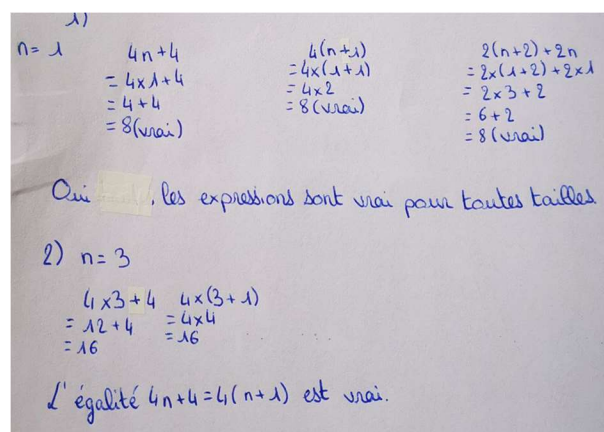 1)
n = 1
4n+4
= 4×1+4
= 4+4
= 8(vrai)
4(n+1)
= 4×(1+1)
= 4×2
= 8(vrai)
2(n+2)+2n
= 2×(1+2)+2×1
= 2×3+2
= 6+2
= 8(vrai)
Oui , les expressions sont vrai pour toutes tailles.
2) n = 3
4×3+4
= 12+4
= 16
4×(3+1)
= 4×4
= 16
L'égalité 4n+4=4(n+1) est vrai.